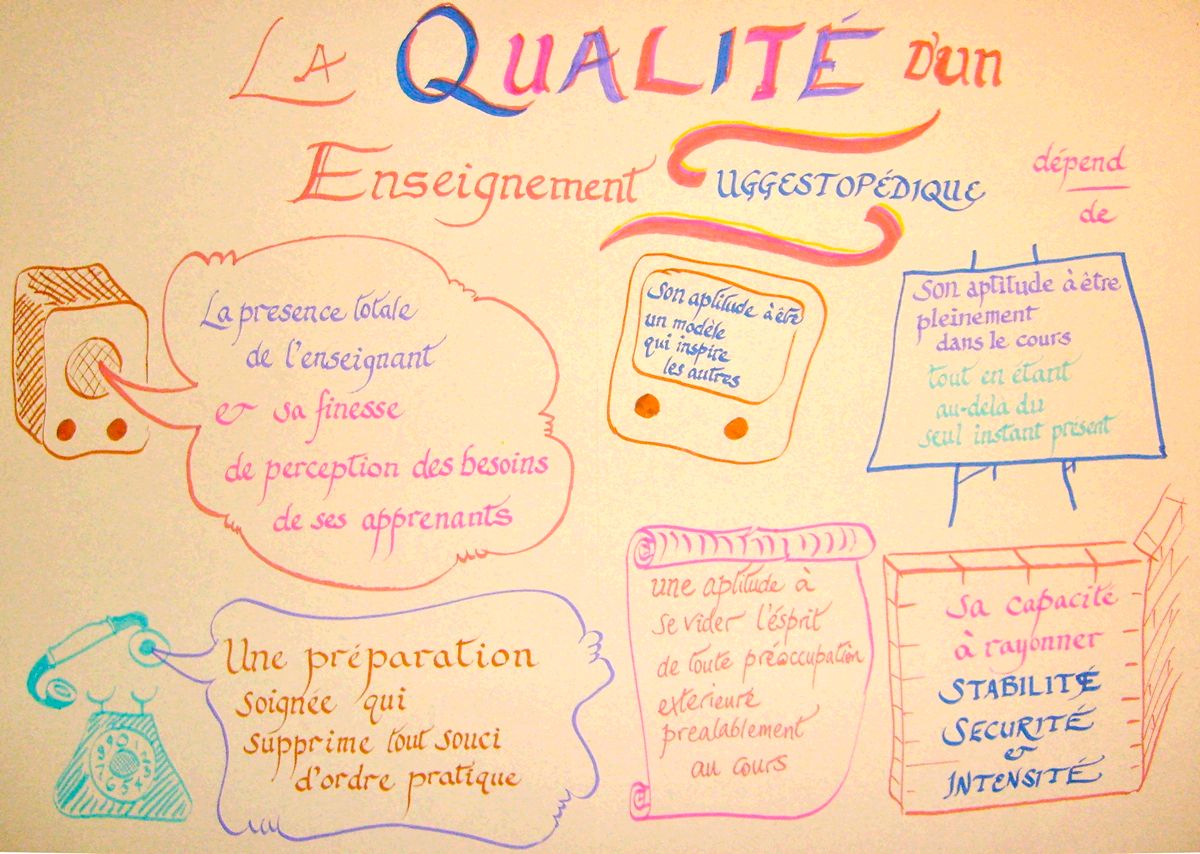 LA QUALITÉ D'UN
Enseignement SUGGESTOPÉDIQUE
dépend
de
La presence totale
de l'enseignant
& sa finesse
de perception des besoins
de ses apprenants
Son aptitude à être
un modèle
qui inspire
les autres
Son aptitude à être
pleinement
dans le cours
tout en étant
au-delà du
seul instant présent
Une préparation
soignée qui
supprime tout souci
d'ordre pratique
une aptitude à
se vider l'ésprit
de toute préoccupation
exterieure
prealablement
au cours
Sa capacité
à rayonner
STABILITÉ
SECURITÉ
&
INTENSITÉ